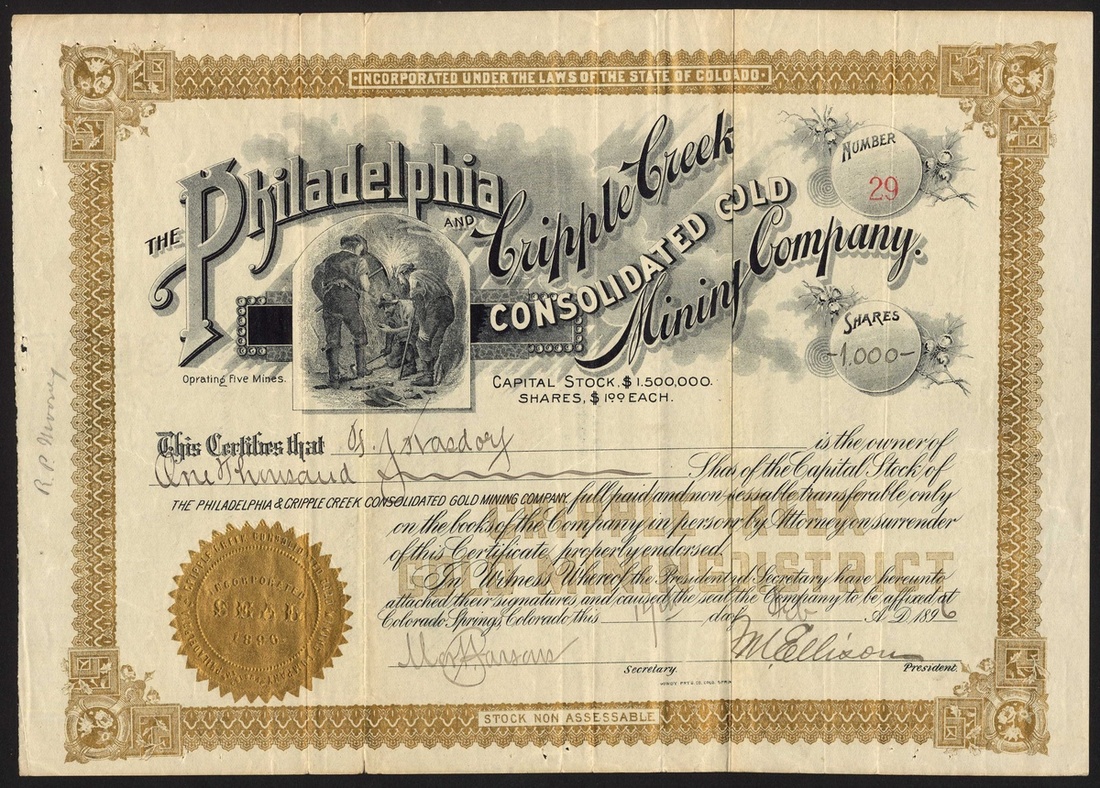 INCORPORATED UNDER THE LAWS OF THE STATE OF COLOADO
THE Philadelphia AND Cripple Creek
CONSOLIDATED GOLD
Mining Company.
NUMBER
29
SHARES
-1.000-
Oprating Five Mines.
CAPITAL STOCK, $1.500,000.
SHARES, $1.00 EACH.
This Certifies that is the owner of
One Thousand Shas of the Capital Stock of
THE PHILADELPHIA & CRIPPLE CREEK CONSOLIDATED GOLD MINING COMPANY full paid and non-sessable transferable only
on the books of the Company in person or by Attorney on surrender
of this Certificate, properly endorsed.
In Witness Whereof, the President and Secretary have hereunto
attached their signatures and caused the seal the Company to be affixed at
Colorado Springs, Colorado, this 17th day Feb A.D. 1896
M. Ellison
Secretary. President.
STOCK NON ASSESSABLE
INCORPORATED
SEAL
1896